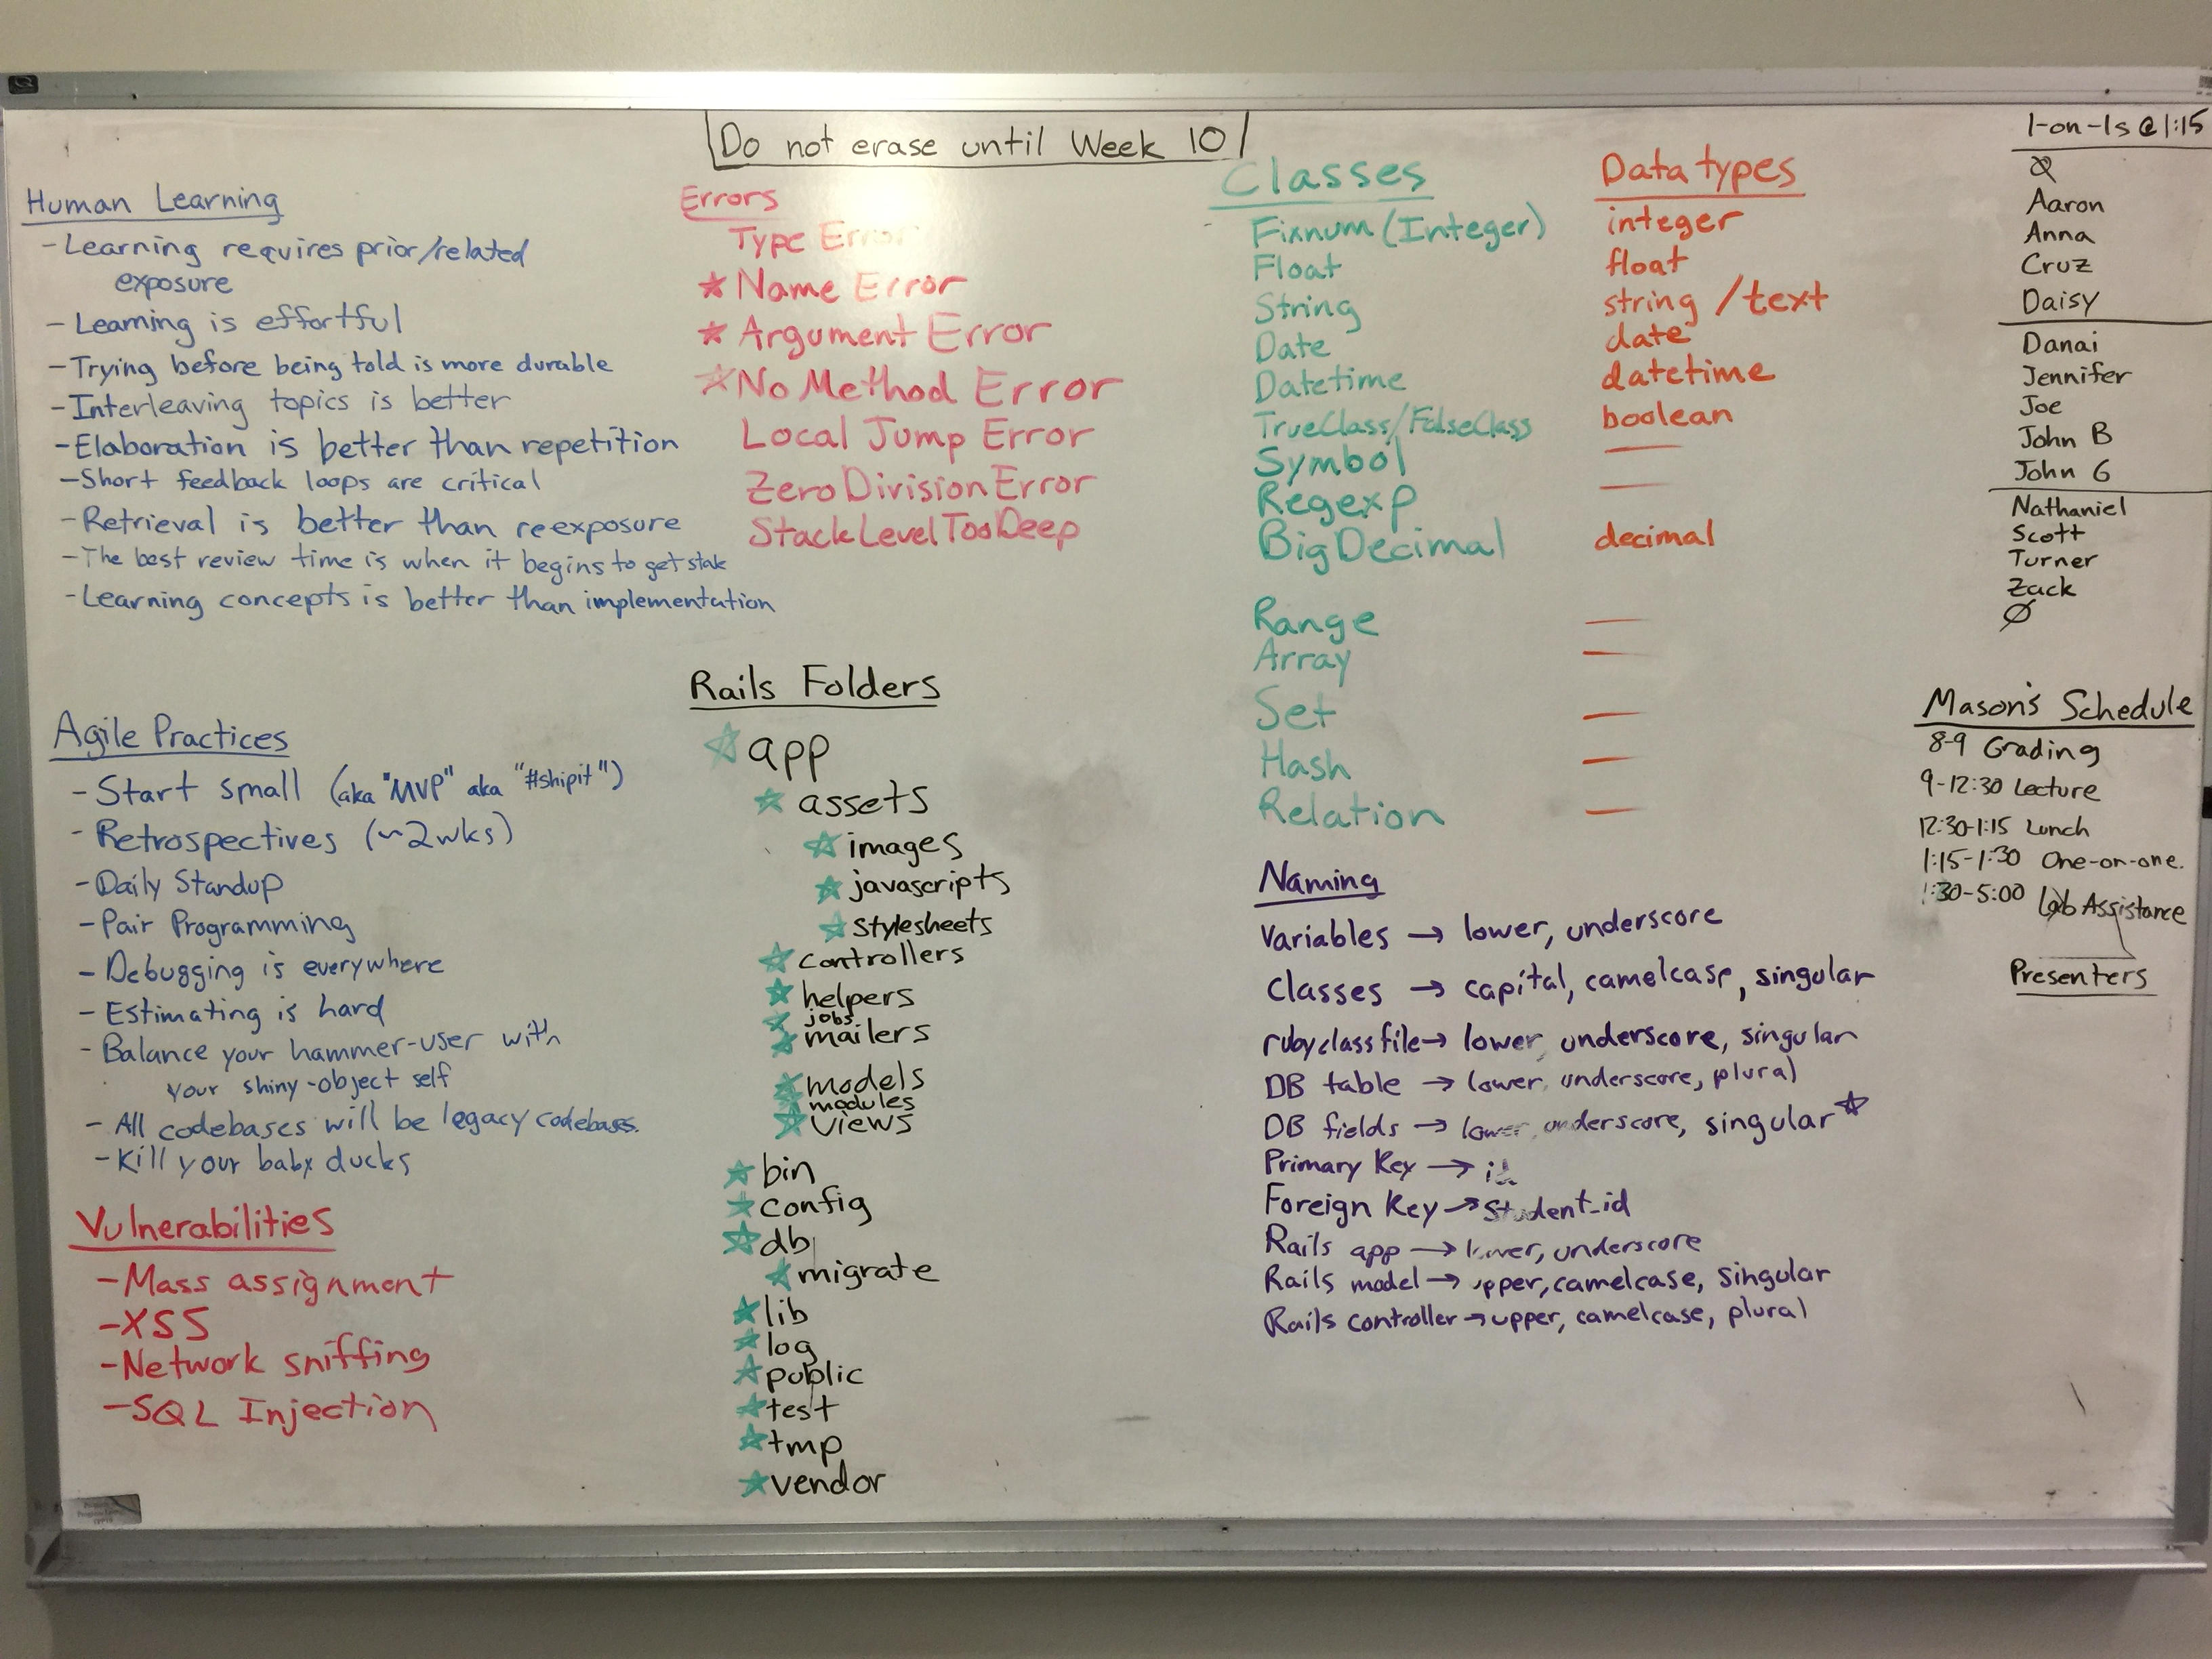 Do not erase until Week 10
Human Learning
- Learning requires prior/related
exposure
- Learning is effortful
- Trying before being told is more durable
- Interleaving topics is better
- Elaboration is better than repetition
- Short feedback loops are critical
- Retrieval is better than reexposure
- The best review time is when it begins to get stale
- Learning concepts is better than implementation
Agile Practices
- Start small (aka "MVP" aka "#shipit")
- Retrospectives (~2wks)
- Daily Standup
- Pair Programming
- Debugging is everywhere
- Estimating is hard
- Balance your hammer-user with
your shiny-object self
- All codebases will be legacy codebases.
- Kill your baby ducks
Vulnerabilities
- Mass assignment
- XSS
- Network sniffing
- SQL Injection
Errors
Type Error
☆ Name Error
☆ Argument Error
☆ No Method Error
Local Jump Error
ZeroDivisionError
StackLevelTooDeep
Rails Folders
☆ app
☆ assets
☆ images
☆ javascripts
☆ stylesheets
☆ controllers
☆ helpers
☆ jobs
☆ mailers
☆ models
☆ modules
☆ views
☆ bin
☆ config
☆ db
☆ migrate
☆ lib
☆ log
☆ public
☆ test
☆ tmp
☆ vendor
Classes Data types
Fixnum (Integer) integer
Float float
String string / text
Date date
Datetime datetime
TrueClass/FalseClass boolean
Symbol —
Regexp —
BigDecimal decimal
Range —
Array —
Set —
Hash —
Relation —
Naming
Variables → lower, underscore
Classes → capital, camelcase, singular
ruby class file → lower, underscore, singular
DB table → lower, underscore, plural
DB fields → lower, underscore, singular ☆
Primary Key → id
Foreign Key → student_id
Rails app → lower, underscore
Rails model → upper, camelcase, singular
Rails controller → upper, camelcase, plural
1-on-1s @ 1:15
Ø
Aaron
Anna
Cruz
Daisy
Danai
Jennifer
Joe
John B
John G
Nathaniel
Scott
Turner
Zack
Ø
Mason's Schedule
8-9 Grading
9-12:30 Lecture
12:30-1:15 Lunch
1:15-1:30 One-on-one.
1:30-5:00 Lab Assistance
Presenters